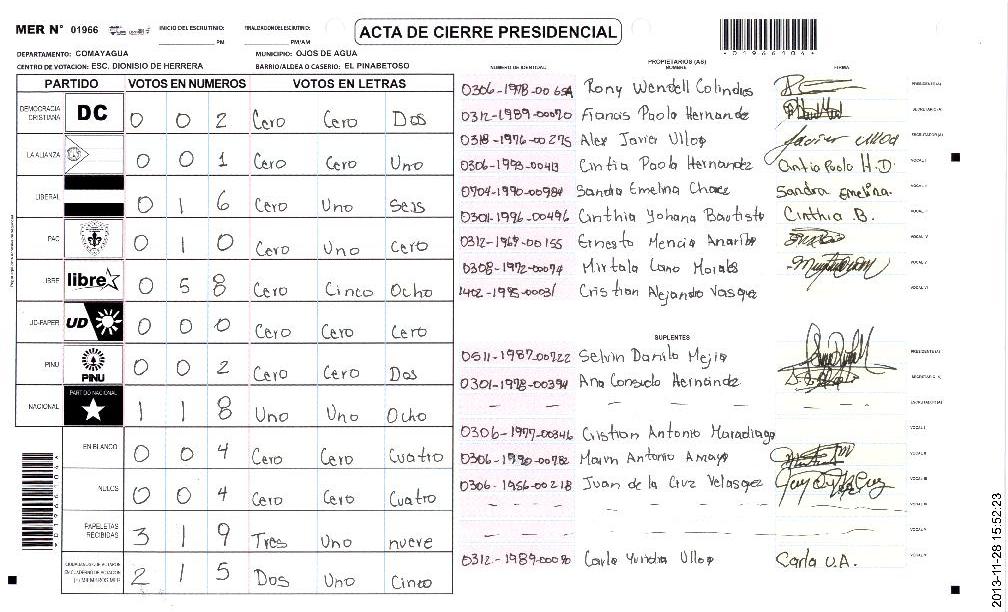 MER N° 01966
INICIO DEL ESCRUTINIO: PM
FINALIZACION DEL ESCRUTINIO: PM/AM
ACTA DE CIERRE PRESIDENCIAL
DEPARTAMENTO: COMAYAGUA
MUNICIPIO: OJOS DE AGUA
CENTRO DE VOTACION: ESC. DIONISIO DE HERRERA
BARRIO/ALDEA O CASERIO: EL PINABETOSO
PARTIDO VOTOS EN NUMEROS VOTOS EN LETRAS
DEMOCRACIA CRISTIANA DC 0 0 2 Cero Cero Dos
LA ALIANZA 0 0 1 Cero Cero Uno
LIBERAL 0 1 6 Cero Uno Seis
PAC 0 1 0 Cero Uno Cero
LIBRE libre 0 5 8 Cero Cinco Ocho
UD-FAPER UD 0 0 0 Cero Cero Cero
PINU PINU 0 0 2 Cero Cero Dos
NACIONAL PARTIDO NACIONAL 1 1 8 Uno Uno Ocho
EN BLANCO 0 0 4 Cero Cero Cuatro
NULOS 0 0 4 Cero Cero Cuatro
PAPELETAS RECIBIDAS 3 1 9 Tres Uno nueve
2 1 5 Dos Uno Cinco
PROPIETARIOS (AS)
NUMERO DE IDENTIDAD NOMBRE FIRMA
Rony Wendell Colindres PRESIDENTE(A)
0312-1989-00070 Francis Paola Hernande SECRETARIO(A)
0318-1976-00275 Alex Javier Ulloa Javier Ulloa ESCRUTADOR(A)
0306-1993-00413 Cintia Paola Hernandez Cintia Paola H.D. VOCAL I
0704-1990-00984 Sandra Emelina Chavez Sandra Emelina. VOCAL II
0301-1996-00496 Cinthia Yohana Bautista Cinthia B. VOCAL III
0312-1969-00155 Ernesto Mencia VOCAL IV
0308-1972-00074 Mirtala Cano Morales VOCAL V
1402-1995-00031 Cristian Alejando Vasque VOCAL VI
SUPLENTES
0511-1987-00722 Selvin Danilo Mejia PRESIDENTE(A)
0301-1978-00394 Ana Consuelo Hernande SECRETARIO(A)
ESCRUTADOR(A)
0306-1977-00346 Cristian Antonio Maradiaga VOCAL I
0306-1990-00782 Antonio Amaya VOCAL II
0306-1956-00218 Juan de la Cruz Velasquez VOCAL III
0312-1989-00090 Carla Ulloa Carla U.A.
2013-11-28 15:52:23